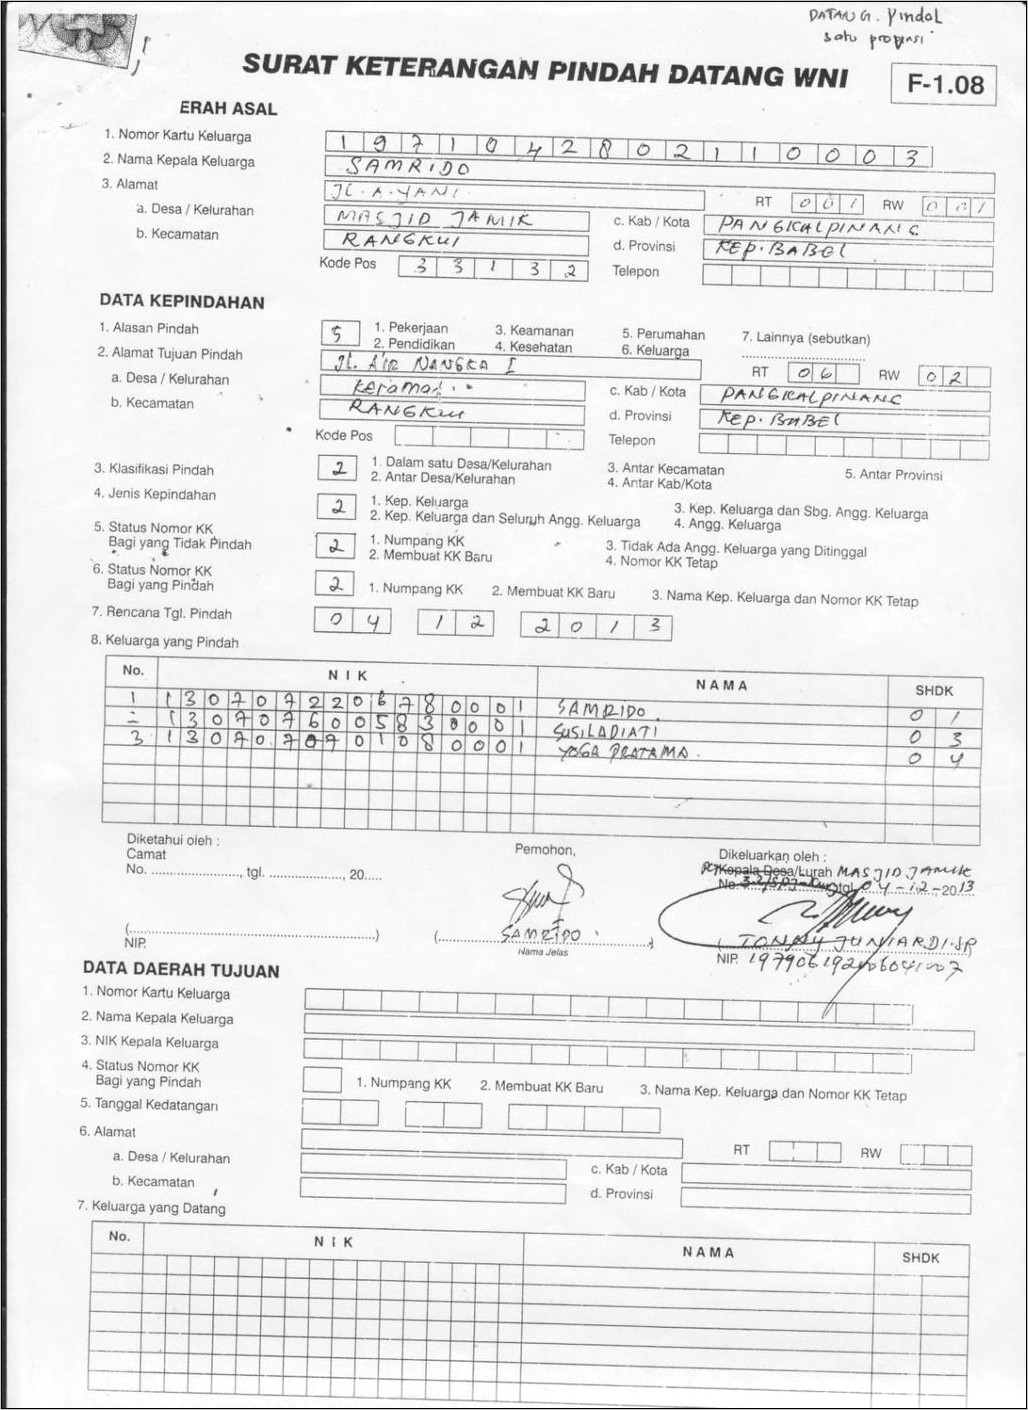 DATANG. Pindah
satu propinsi
SURAT KETERANGAN PINDAH DATANG WNI
F-1.08
ERAH ASAL
1. Nomor Kartu Keluarga 1971042802110003
2. Nama Kepala Keluarga SAMRIDO
3. Alamat JL. A. YANI RT 001 RW 001
a. Desa / Kelurahan MASJID JAMIK c. Kab / Kota PANGKALPINANG
b. Kecamatan RANGKUI d. Provinsi KEP. BABEL
Kode Pos 33132 Telepon
DATA KEPINDAHAN
1. Alasan Pindah 5 1. Pekerjaan 3. Keamanan 5. Perumahan 7. Lainnya (sebutkan)
2. Pendidikan 4. Kesehatan 6. Keluarga ........................
2. Alamat Tujuan Pindah JL. AIR NANGKA I RT 06 RW 02
a. Desa / Kelurahan c. Kab / Kota PANGKALPINANG
b. Kecamatan RANGKUI d. Provinsi KEP. BABEL
Kode Pos Telepon
3. Klasifikasi Pindah 2 1. Dalam satu Desa/Kelurahan 3. Antar Kecamatan 5. Antar Provinsi
2. Antar Desa/Kelurahan 4. Antar Kab/Kota
4. Jenis Kepindahan 2 1. Kep. Keluarga 3. Kep. Keluarga dan Sbg. Angg. Keluarga
2. Kep. Keluarga dan Seluruh Angg. Keluarga 4. Angg. Keluarga
5. Status Nomor KK 2 1. Numpang KK 3. Tidak Ada Angg. Keluarga yang Ditinggal
Bagi yang Tidak Pindah 2. Membuat KK Baru 4. Nomor KK Tetap
6. Status Nomor KK
Bagi yang Pindah 2 1. Numpang KK 2. Membuat KK Baru 3. Nama Kep. Keluarga dan Nomor KK Tetap
7. Rencana Tgl. Pindah 04 12 2013
8. Keluarga yang Pindah
No. NIK NAMA SHDK
1 1307072206780001 SAMRIDO 01
1307076005830001 SUSILADIATI 03
3 1307070701080001 YOGA PRATAMA 04
Diketahui oleh : Pemohon, Dikeluarkan oleh :
Camat Kepala Desa/Lurah MASJID JAMIK
No. ......................, tgl. ..................., 20..... No. tgl 04-12-2013
SAMRIDO TONNY JUNIARDI.SP
NIP. Nama Jelas NIP.
DATA DAERAH TUJUAN
1. Nomor Kartu Keluarga
2. Nama Kepala Keluarga
3. NIK Kepala Keluarga
4. Status Nomor KK
Bagi yang Pindah 1. Numpang KK 2. Membuat KK Baru 3. Nama Kep. Keluarga dan Nomor KK Tetap
5. Tanggal Kedatangan
6. Alamat RT RW
a. Desa / Kelurahan c. Kab / Kota
b. Kecamatan d. Provinsi
7. Keluarga yang Datang
No. NIK NAMA SHDK